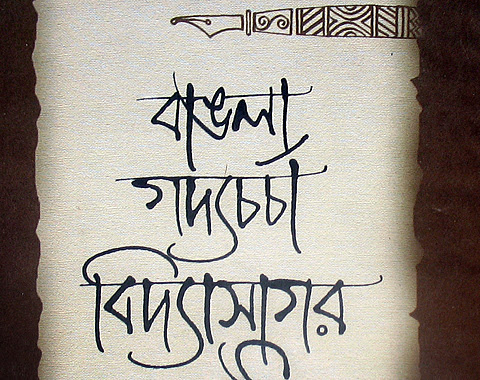 বাঙলা
গদ্যচর্চা
বিদ্যাসাগর